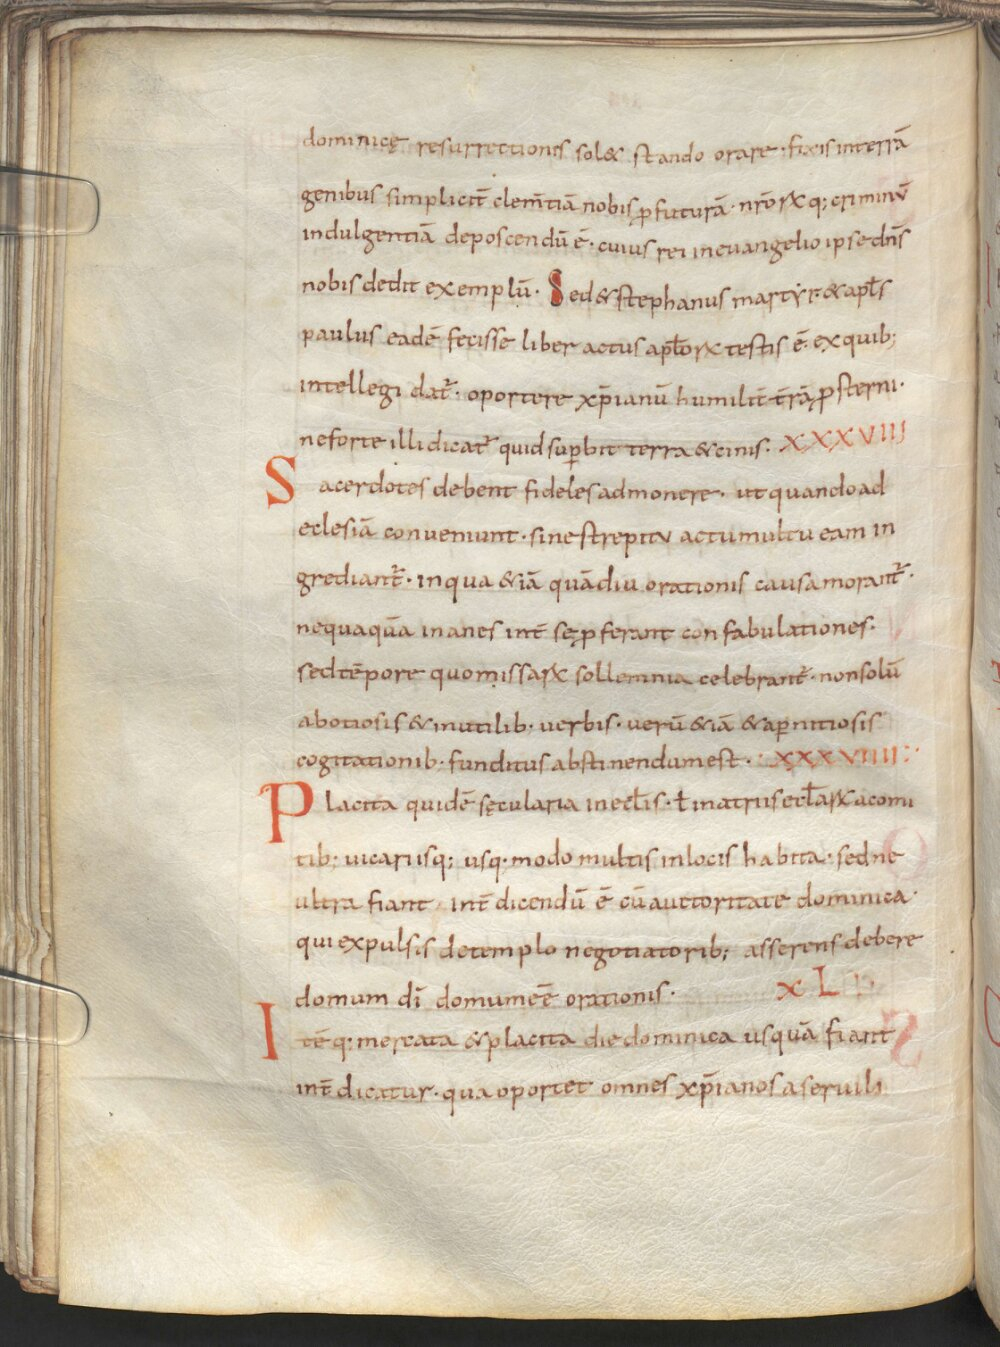 dominicę resurrectionis sol& stando orare · fixis in terrā
genibus simplicit̄ clem̄tiā nobis ꝓfuturā · nr̄oꝝ q; criminū
indulgentiā deposcendū ē · cuius rei in euangelio ipse dn̄s
nobis dedit exemplū · Sed & stephanus martyr · & apl̄s
paulus eadē fecisse liber actus apl̄oꝝ testis ē · ex quib;
intellegi dat̄ · oportere xp̄ianū humilit̄ t̄rā ꝓsterni ·
ne forte illi dicat̄ quid supbit terra & cinis · XXXVIII
Sacerdotes debent fideles admonere · ut quando ad
eclesiā conueniunt · sine strepitu ac tumultu eam in
grediant̄ · in qua &iā quādiu orationis causa morant̄ ·
nequaquā inanes int̄ sę ꝓferant confabulationes ·
sed tēpore quo missaꝝ sollemnia celebrant̄ · non solū
ab otiosis & inutilib · uerbis · uerū &iā & a pernitiosis
cogitationib · funditus abstinendum est · XXXVIIII
Placita quidē sęcularia in ecl̄is · ł in atriis eccl̄aꝝ a comi
tib; uicariisq; usq · modo multis in locis habita · sed ne
ultra fiant int̄dicendū ē cū auctoritate dominica ·
qui expulsis de templo negotiatorib; asserens debere
domum dī domum eē orationis · XL
Itē q; mercata & placita die dominica usquā fiant
int̄dicatur · qua oportet omnes xp̄ianos a seruili